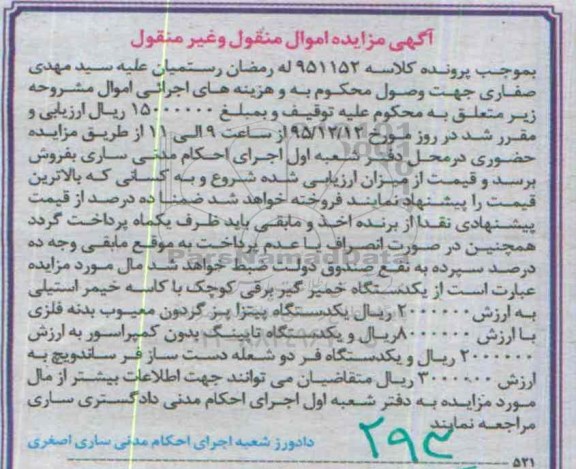 آگهی مزایده اموال منقول وغیر منقول
بموجب پرونده کلاسه ۹۵۱۱۵۲ له رمضان رستمیان علیه سید مهدی
صفاری جهت وصول محکوم به و هزینه های اجرائی اموال مشروحه
زیر متعلق به محکوم علیه توقیف و بمبلغ ۱۵۰۰۰۰۰۰ ریال ارزیابی و
مقرر شد در روز مورخ ۹۵/۱۲/۱۲ از ساعت ۹ الی ۱۱ از طریق مزایده
حضوری درمحل دفتر شعبه اول اجرای احکام مدنی ساری بفروش
برسد و قیمت از میزان ارزیابی شده شروع و به کسانی که بالاترین
قیمت را پیشنهاد نمایند فروخته خواهد شد ضمنا ده درصد از قیمت
پیشنهادی نقدا از برنده اخذ و مابقی باید ظرف یکماه پرداخت گردد
همچنین در صورت انصراف یا عدم پرداخت به موقع مابقی وجه ده
درصد سپرده به نفع صندوق دولت ضبط خواهد شد مال مورد مزایده
ParsNamadData
عبارت است از یکدستگاه خمیر گیر برقی کوچک با کاسه خیمر استیلی
به ارزش ۲۰۰۰۰۰۰ ریال یکدستگاه پیتزا پز گردون معیوب بدنه فلزی
با ارزش ۸۰۰۰۰۰۰ریال و یکدستگاه تاپینگ بدون کمپراسور به ارزش
۲۰۰۰۰۰۰ ریال و یکدستگاه فر دو شعله دست ساز فر ساندویچ به
ارزش ۳۰۰۰۰۰۰ ریال متقاضیان می توانند جهت اطلاعات بیشتر از مال
مورد مزایده به دفتر شعبه اول اجرای احکام مدنی دادگستری ساری
مراجعه نمایند
۲۹۳
دادورز شعبه اجرای احکام مدنی ساری اصغری
۵۲۱